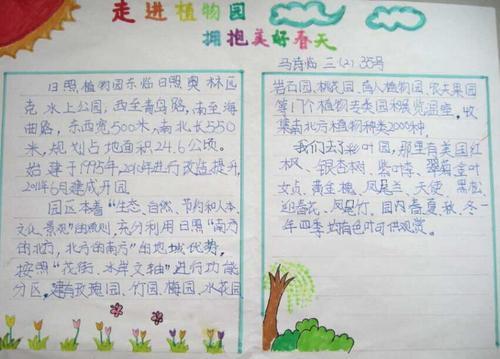 走进植物园
拥抱美好春天
马诗临 三(2) 35号
日照植物园东临日照奥林匹
克水上公园，西至青岛路，南至海
曲路，东西宽500米，南北长550
米，规划占地面积24.6公顷。
始建于1995年，2010年进行改造提升，
2011年6月建成开园
园区本着“生态、自然、节约和人本
文化、景观”的原则，充分利用日照“南方
的北方，北方的南方”的地域优势，
按照“花街、水岸文轴”进行功能
分区，建有玫瑰园、竹园、梅园、水花园
岩石园、桃花园、盲人植物园、农夫果园
等17个植物专类园和展览温室，收
集南北方植物种类2000种。
我们去了彩叶园，那里有美国红
枫、银杏树、紫叶李、翠菊金叶
女贞、黄金槐、凤尾兰、天使、黑松
迎春花、凤尾竹，园内春、夏、秋、冬一
年四季均有色叶可供观赏。